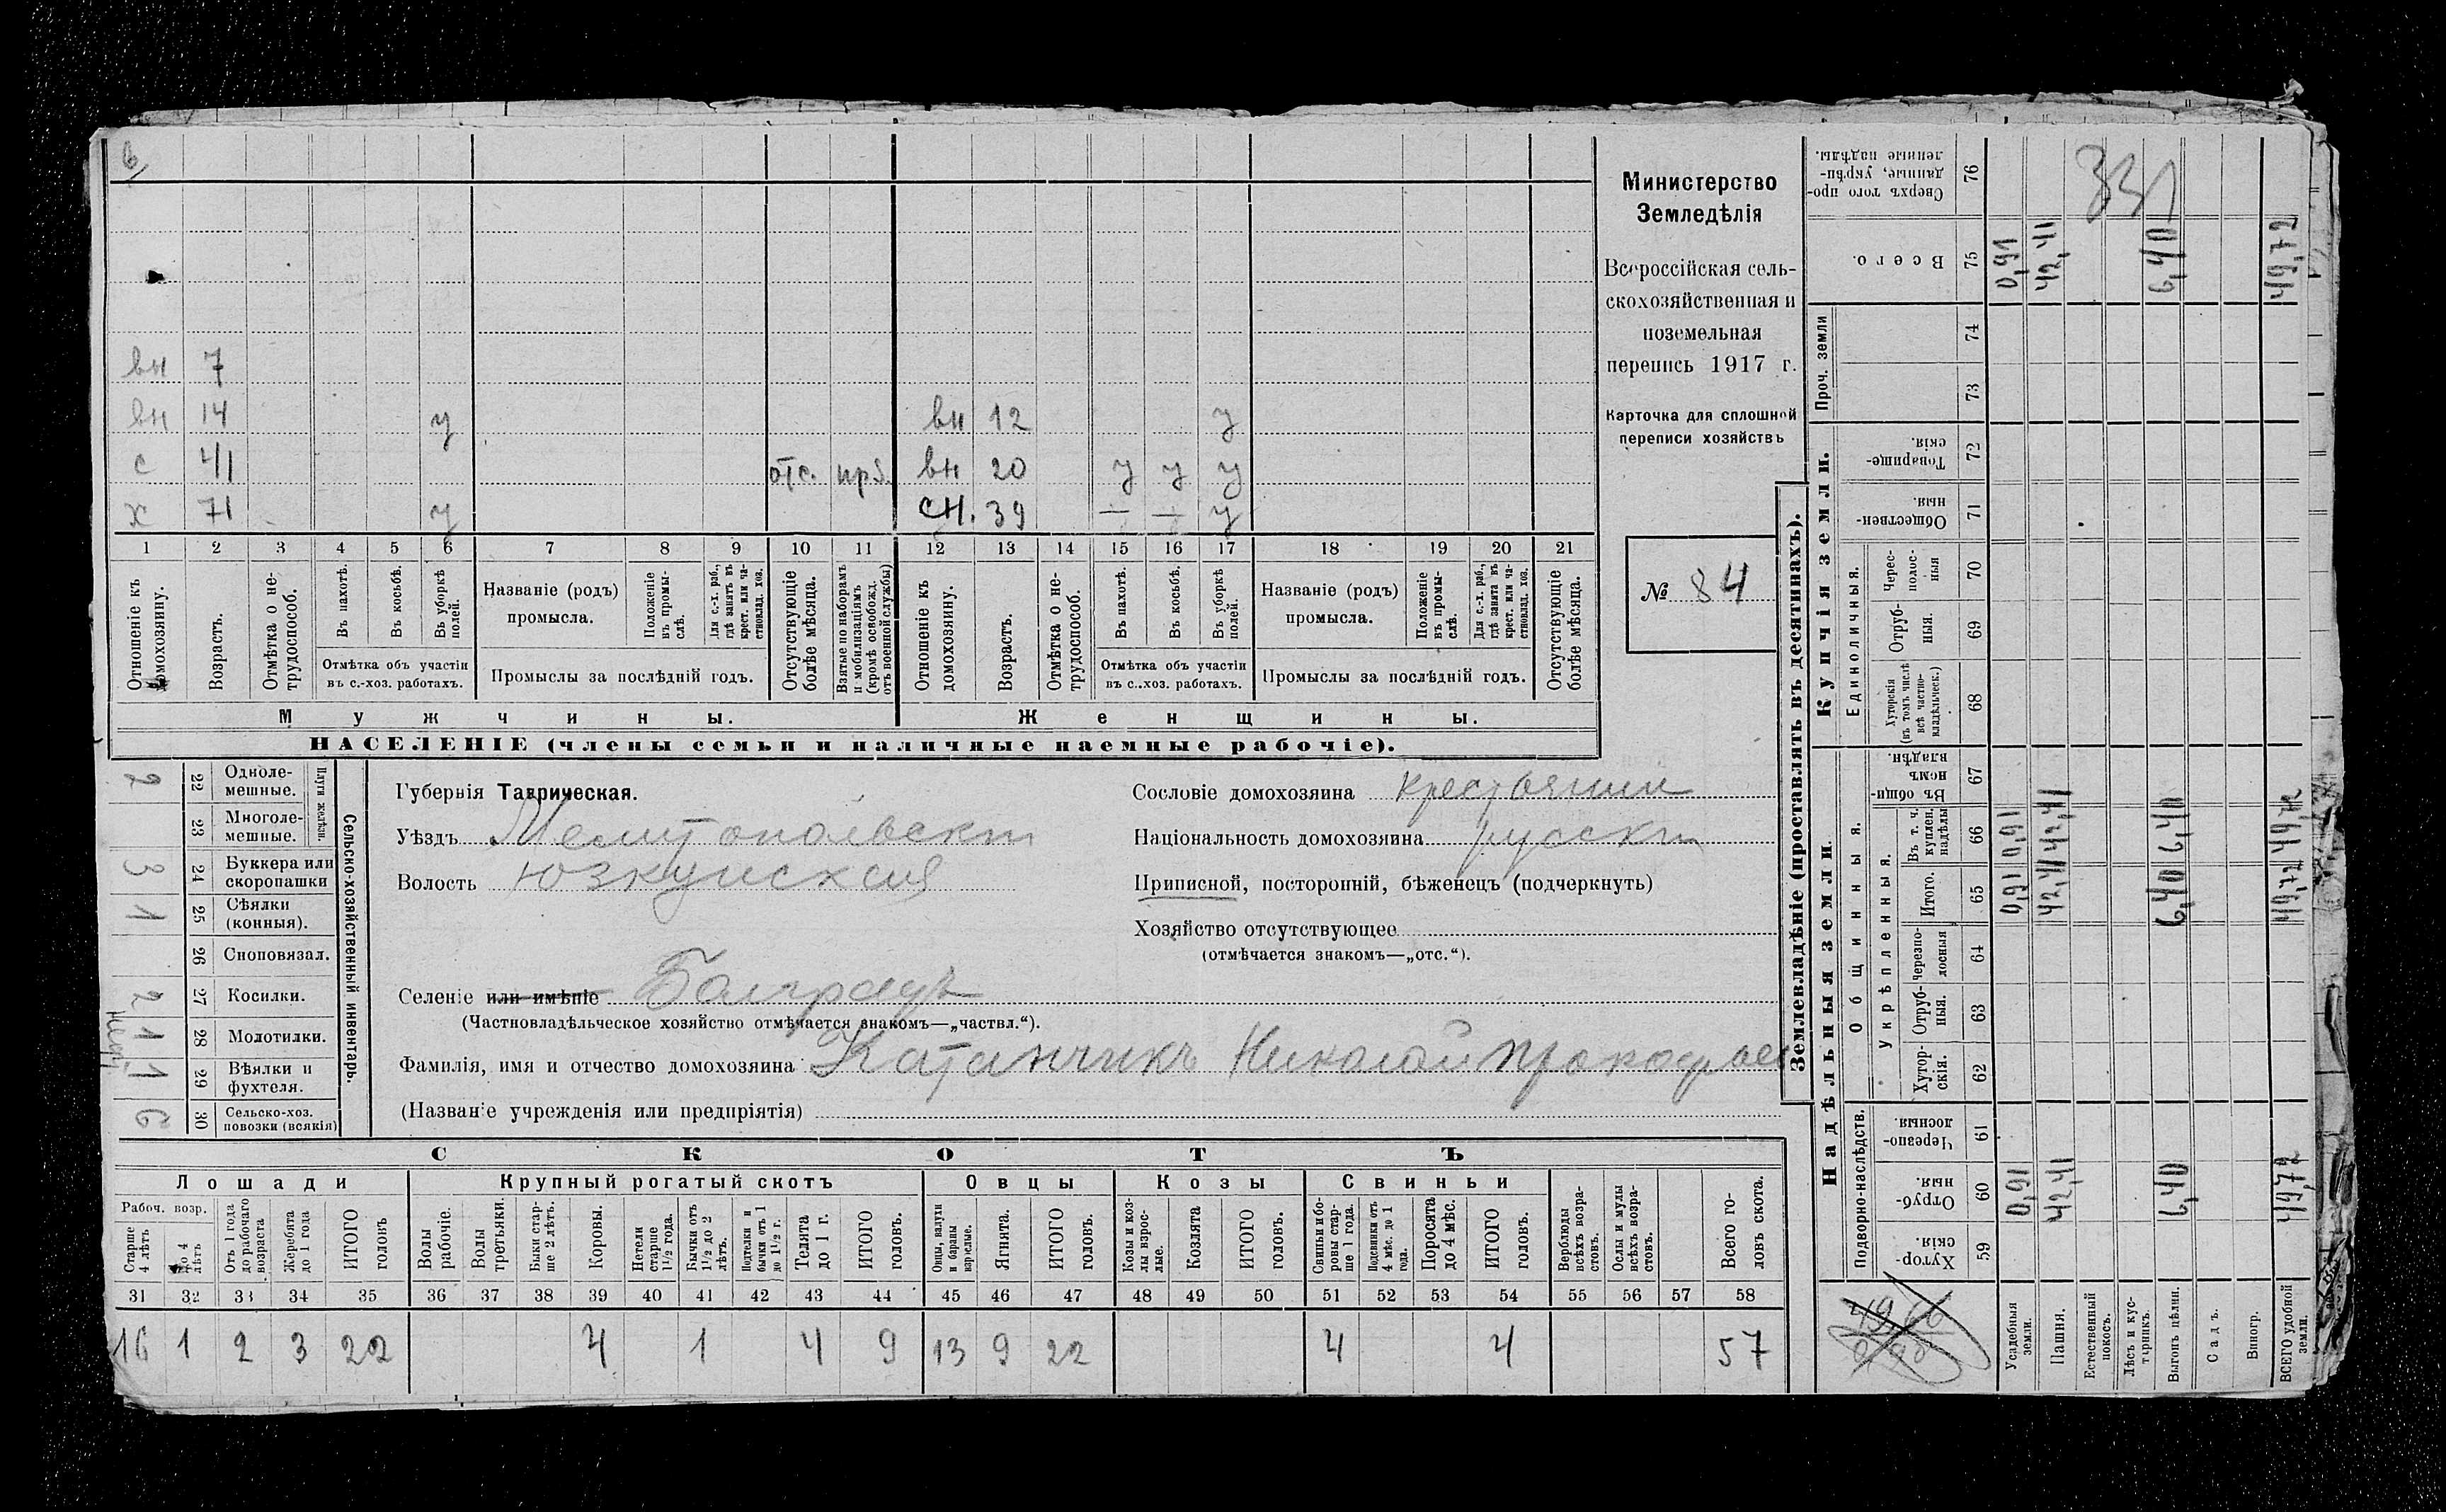 6
331
вн 7
вн 14 у вн 12 у
с 41 отс. вн 20 у у у
х 71 у сн. 39 — — у
1 2 3 4 5 6 7 8 9 10 11 12 13 14 15 16 17 18 19 20 21
Отношеніе къ домохозяину.
Возрастъ.
Отмѣтка о не-
трудоспособ.
Въ пахотѣ.
Въ косьбѣ.
Въ уборкѣ
полей.
Отмѣтка объ участіи
въ с.-хоз. работахъ.
Названіе (родъ)
промысла.
Положеніе
въ промы-
слѣ.
Для с.-х. раб.,
гдѣ занятъ въ
крест. или ча-
стновлад. хоз.
Промыслы за послѣдній годъ.
Отсутствующіе
болѣе мѣсяца.
Взятые по наборамъ
и мобилизаціямъ
(кромѣ освобожд.
отъ военной службы)
Отношеніе къ
домохозяину.
Возрастъ.
Отмѣтка о не-
трудоспособ.
Въ пахотѣ.
Въ косьбѣ.
Въ уборкѣ
полей.
Отмѣтка объ участіи
въ с.-хоз. работахъ.
Названіе (родъ)
промысла.
Положеніе
въ промы-
слѣ.
Для с.-х. раб.,
гдѣ занята въ
крест. или ча-
стновлад. хоз.
Промыслы за послѣдній годъ.
Отсутствующіе
болѣе мѣсяца.
Мужчины.
Женщины.
НАСЕЛЕНІЕ (члены семьи и наличные наемные рабочіе).
Министерство
Земледѣлія
Всероссійская сель-
скохозяйственная и
поземельная
перепись 1917 г.
Карточка для сплошной
переписи хозяйствъ
№ 84
Плуги желѣзн.
Сельско-хозяйственный инвентарь.
2 22 Одноле-
мешные.
23 Многоле-
мешные.
3 24 Буккера или
скоропашки
1 25 Сѣялки
(конныя).
26 Сноповязал.
2 27 Косилки.
1 28 Молотилки.
1 29 Вѣялки и
фухтеля.
6 30 Сельско-хоз.
повозки (всякія)
Губернія Таврическая.
Уѣздъ Мелитопольскій
Волость Юзкуйская
Селеніе или имѣніе Болградъ
(Частновладѣльческое хозяйство отмѣчается знакомъ—„частвл.“).
Фамилія, имя и отчество домохозяина Катанчикъ Николай Прокофьев
(Названіе учрежденія или предпріятія)
Сословіе домохозяина крестьянин
Національность домохозяина русскій
Приписной, посторонній, бѣженецъ (подчеркнуть)
Хозяйство отсутствующее
(отмѣчается знакомъ—„отс.“).
СКОТЪ
Лошади
Крупный рогатый скотъ
Овцы
Козы
Свиньи
Рабоч. возр.
Старше
4 лѣтъ
До 4
лѣтъ
Отъ 1 года
до рабочаго
возраста
Жеребята
до 1 года
ИТОГО
головъ
Волы
рабочіе.
Волы
третьяки.
Быки стар-
ше 2 лѣтъ.
Коровы.
Нетели
старше
1½ года.
Бычки отъ
1½ до 2
лѣтъ.
Подтелки и
бычки отъ 1
до 1½ г.
Телята
до 1 г.
ИТОГО
головъ.
Овцы, валухи
и бараны
взрослые.
Ягнята.
ИТОГО
головъ.
Козы и коз-
лы взрос-
лые.
Козлята
ИТОГО
головъ.
Свиньи и бо-
ровы стар-
ше 1 года.
Подсвинки отъ
4 мѣс. до 1
года.
Поросята
до 4 мѣс.
ИТОГО
головъ.
Верблюды
всѣхъ возра-
стовъ.
Ослы и мулы
всѣхъ возра-
стовъ.
Всего го-
ловъ скота.
31 32 33 34 35 36 37 38 39 40 41 42 43 44 45 46 47 48 49 50 51 52 53 54 55 56 57 58
16 1 2 3 22 4 1 4 9 13 9 22 4 4 57
Землевладѣніе (проставлять въ десятинахъ).
Надѣльныя земли.
Купчія земли.
Проч. земли
Подворно-наслѣдств.
Общинныя.
Укрѣпленныя.
Единоличныя.
Хутор-
скія. 59
Отруб-
ныя. 60
Черезпо-
лосныя 61
Хутор-
скія. 62
Отруб-
ныя. 63
Черезпо-
лосныя 64
Итого. 65
Въ т. ч.
куплен.
надѣлы 66
Въ общи-
номъ
владѣн. 67
Хуторскія
(въ томъ числѣ
всѣ частно-
владѣльческ.) 68
Отруб-
ныя. 69
Черес-
полос-
ныя 70
Обществен-
ныя. 71
Товарище-
скія. 72
73
74
Всего. 75
Сверхъ того про-
данные, укрѣп-
ленные надѣлы. 76
Усадебныя
земли. 0,91 0,91 0,91 0,91
Пашня. 42,41 42,41 42,41 42,41
Естественный
покосъ.
Лѣсъ и кус-
тарникъ.
Выгонъ цѣлин. 6,40 6,40 6,40 6,40
Садъ.
Виногр.
ВСЕГО удобной
земли. 49,72 49,72 49,72 49,72